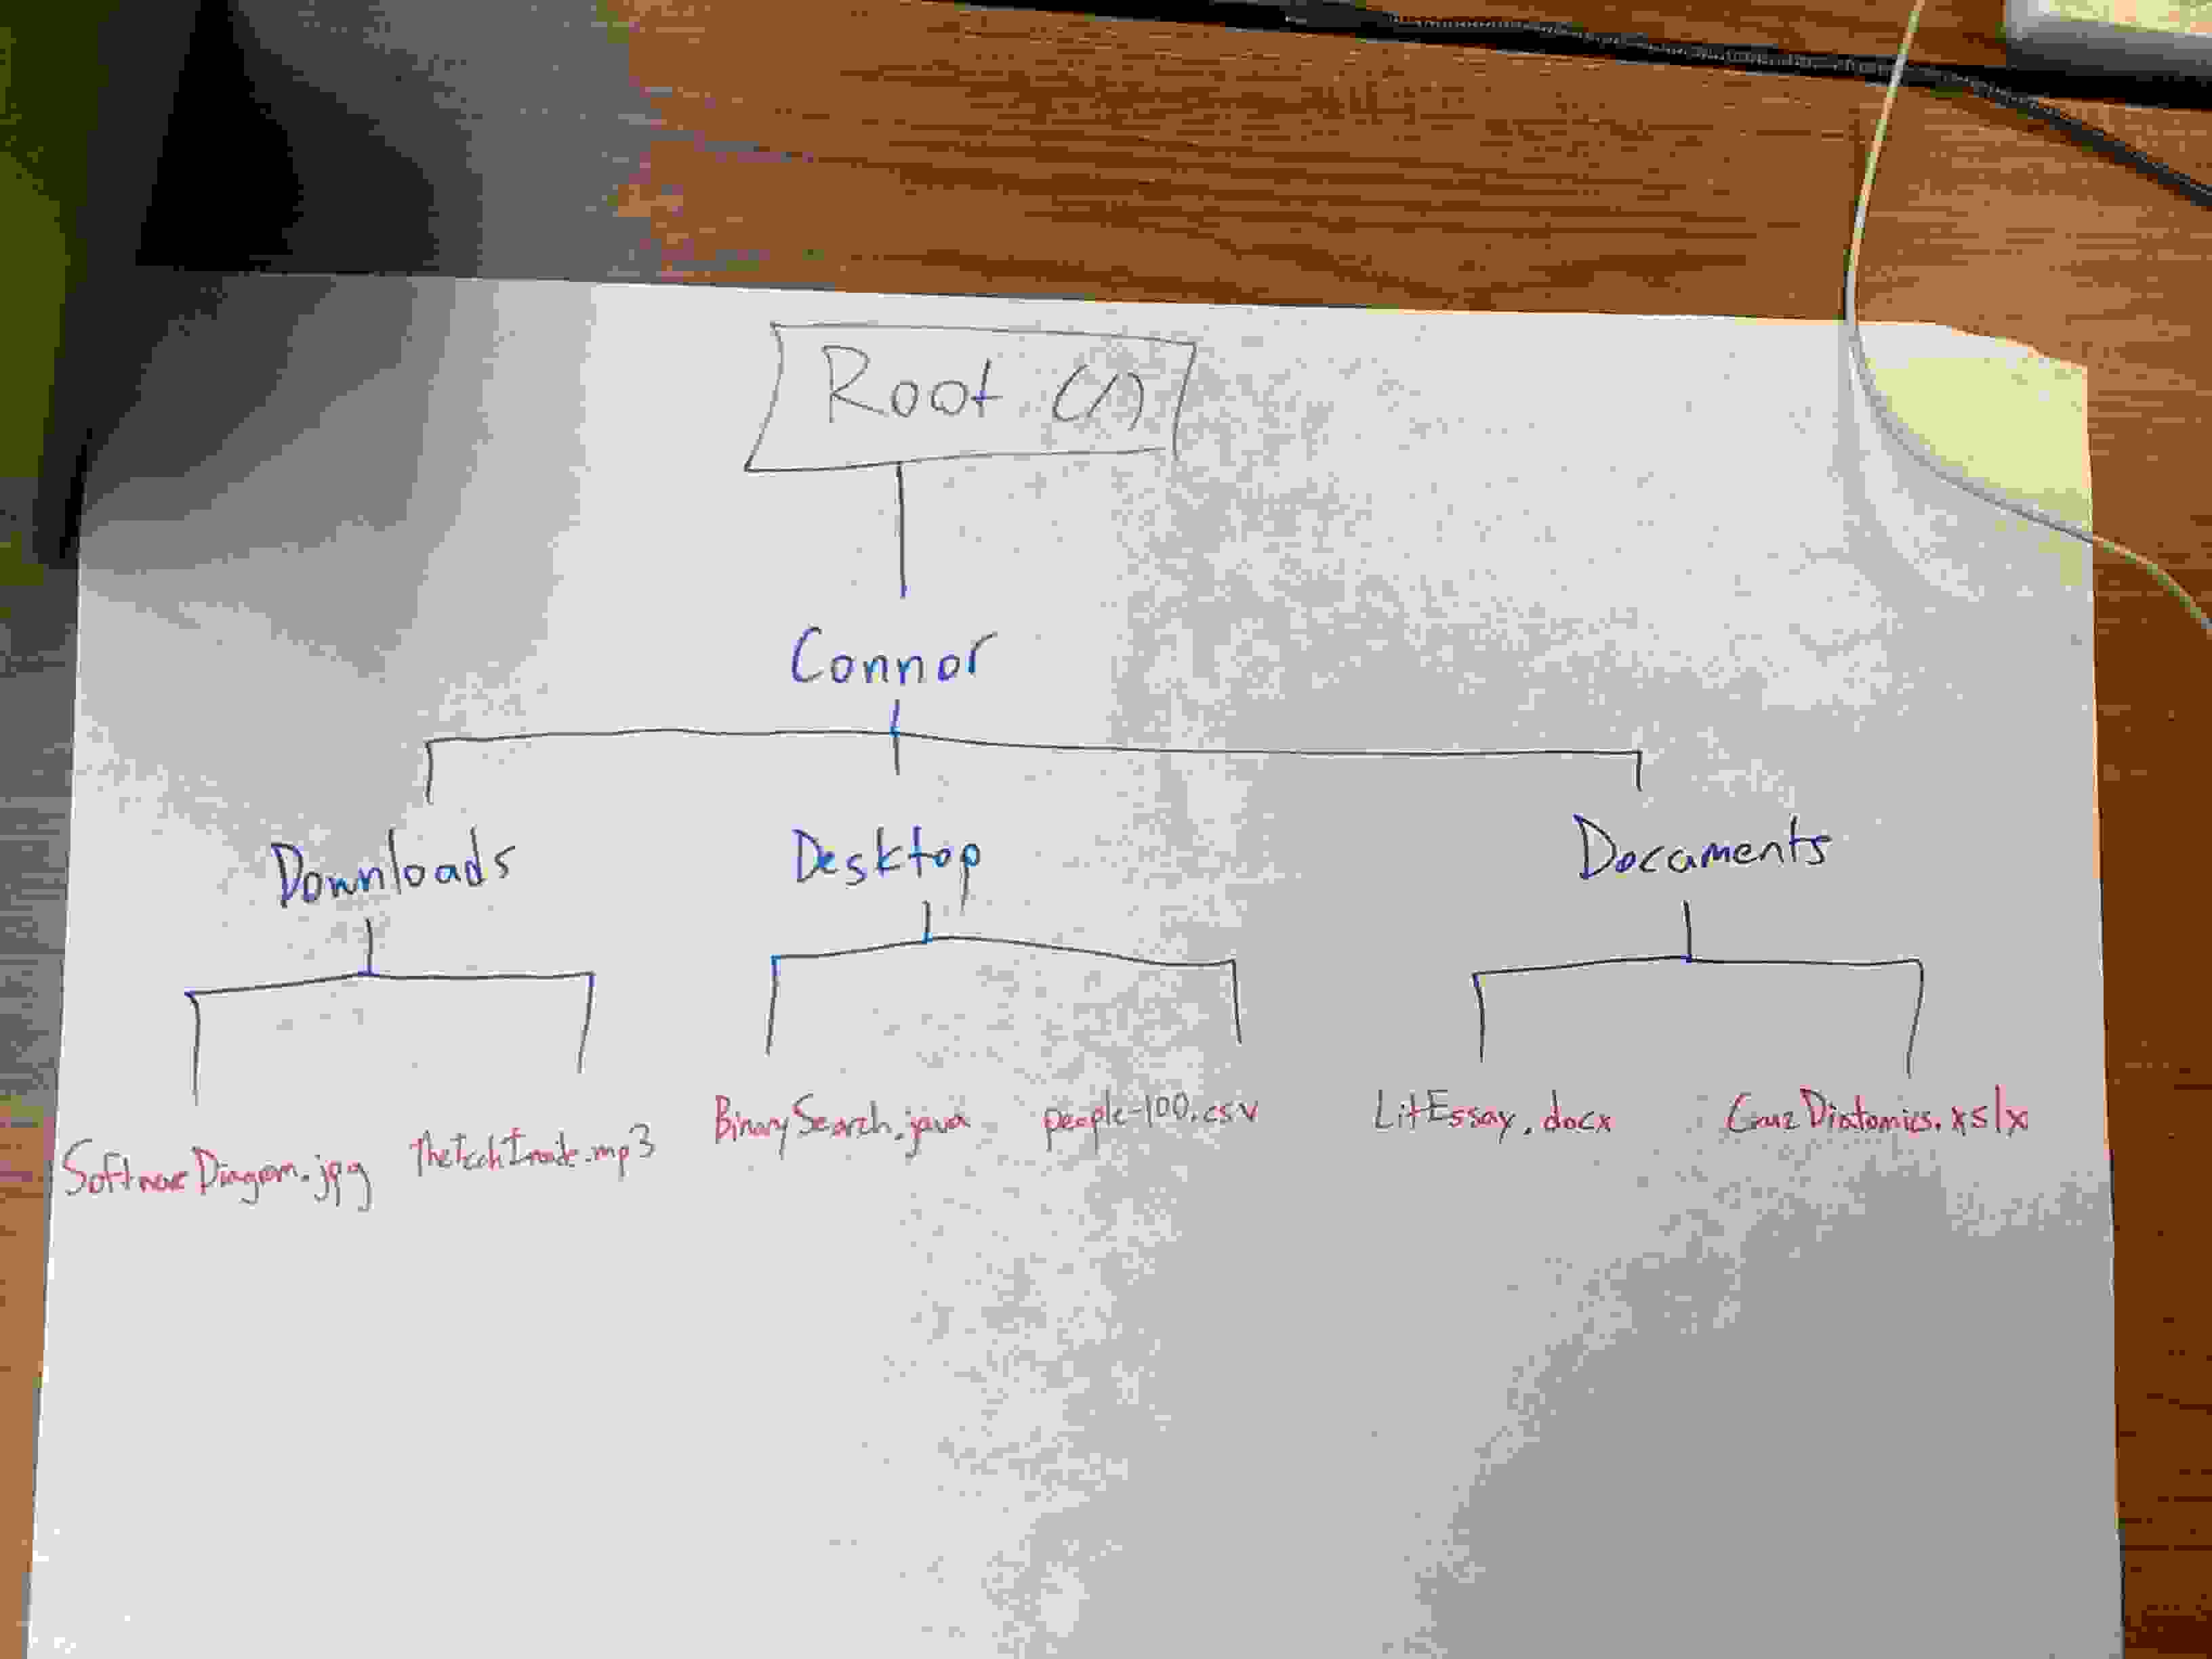 Root (/)
Connor
Downloads
Desktop
Documents
SoftwareDiagram.jpg
TheTechInside.mp3
BinarySearch.java
people-100.csv
LitEssay.docx
.xslx